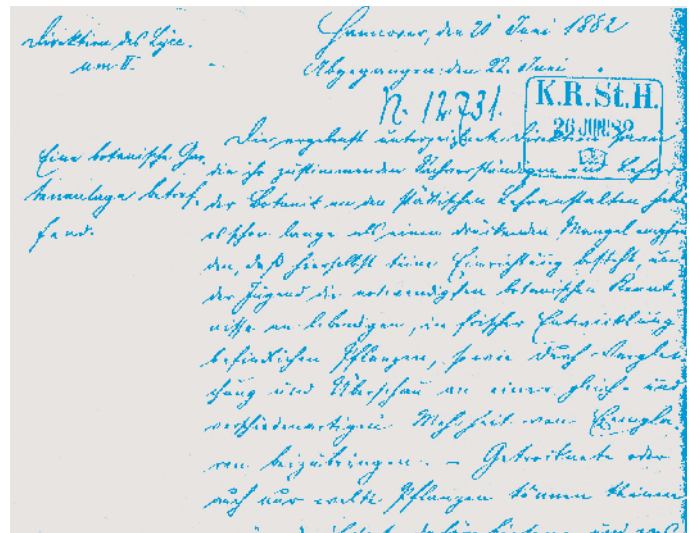 Direktion des Lyc.
Hannover, den 20 Juni 1882
num II.
Abgegangen: den 22. Juni
N. 12.731.
K.R.St.H.
26 JUN 82
Eine botanische Gar-
tenanlage betref-
fend.
Der ergebenst unterzeichnete Direktor sowie
die ihr zustimmenden Sachverständigen und Lehrer
der Botanik an den städtischen Lehranstalten hat
es schon lange als einen drückenden Mangel empfun
den, daß hierselbst keine Einrichtung besteht, um
der Jugend die notwendigsten botanischen Kennt-
nisse an lebendigen, in frischer Entwicklung
befindlichen Pflanzen, sowie durch Verglei-
chung und Überschau an einer gleich- und
verschiedenartigen Mehrheit von Exempla-
ren beizubringen. – Getrocknete oder
auch nur welke Pflanzen können keinen